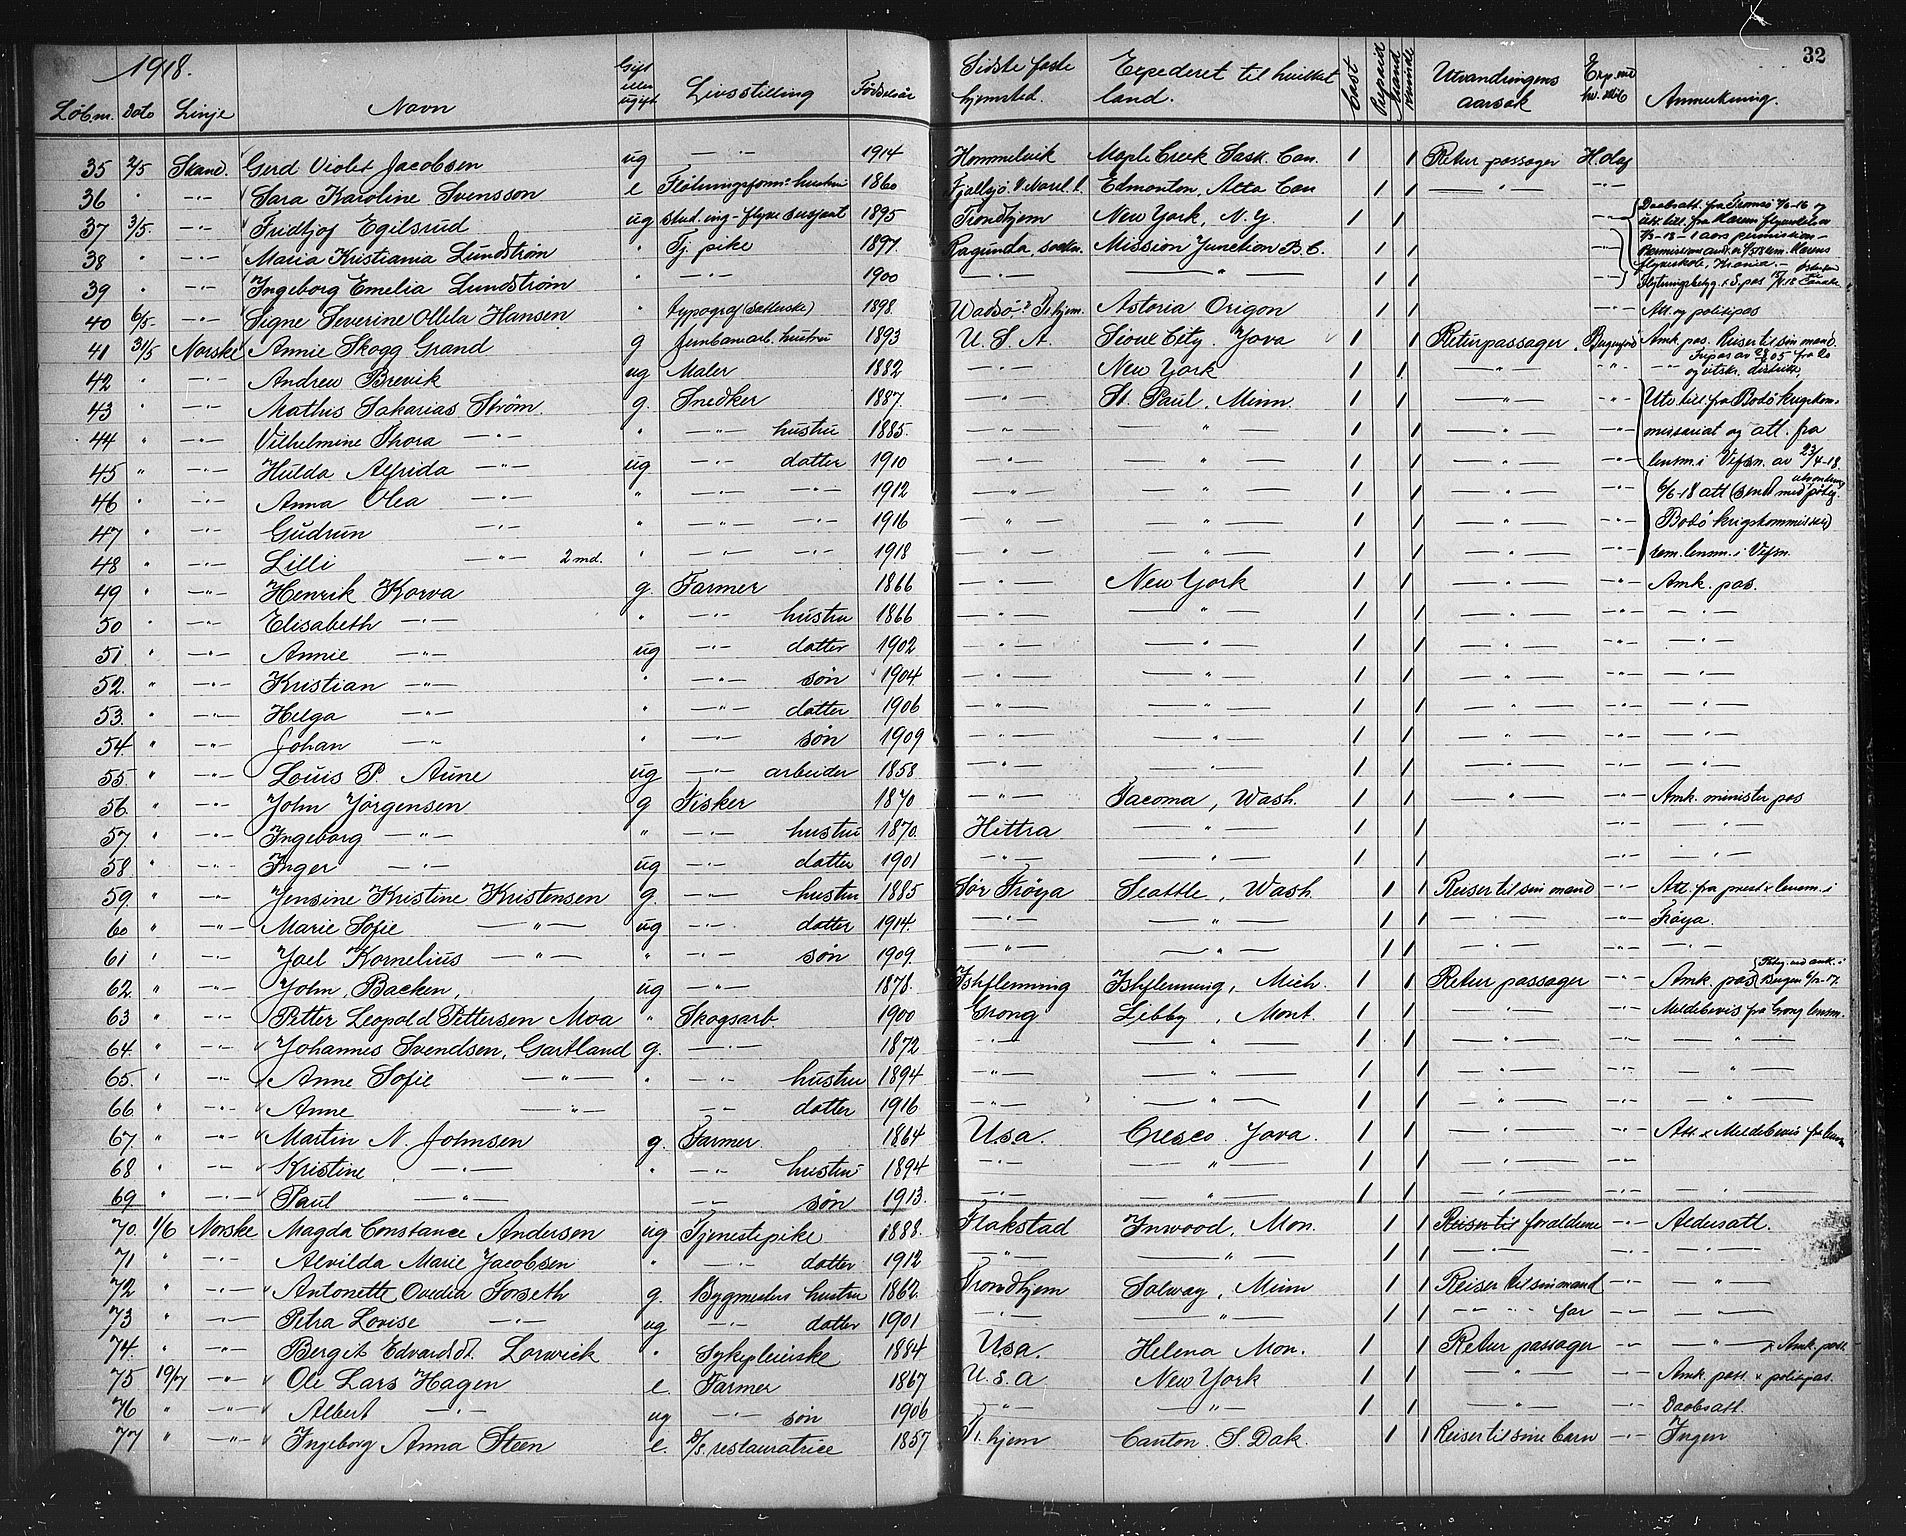 32
1918.
Løb.nr. Dato Linje Navn Gift eller ugift Livsstilling Fødselsår Sidste faste hjemsted. Expederet til hvilket land. Cast Prepaid Mand Kvinde Utvandringens aarsak Exp. med hv. skib Anmerkning.
35 2/5 Skand. Gerd Violet Jacobsen ug —"— 1914 Hommelvik Maple Creek Sask. Can. 1 1 Retur passager H. olaf
36 " —"— Sara Karoline Svensson e Fløtningsform. hustru 1860 Edmonton, Alta Can 1 1 —"— —"—
37 3/5 —"— Fridtjof Egilsrud ug stud. ing - flyve sersjant 1895 Trondhjem New York, N.Y. 1 1 —"—
38 " —"— Maria Kristiania Lundstrøm " Tj. pike 1897 Ragunda, Mission Junction B.C. 1 1 —"—
39 " —"— Ingeborg Emelia Lundstrøm —"— 1900 —"— —"— 1 1 —"—
40 6/5 —"— Signe Severine Ollela Hansen " typograf (Setterske) 1898 Wadsö - Tr.hjem. Astoria Origon 1 1 —"— Att. og politipas
41 31/5 Norske Annie Skogg Grand g jernbanearb. hustru 1893 U. S. A. Sioux City. Jova 1 1 Returpassager. Bergensfj. Amk. pas. Reiser til sin mand.
42 " —"— Andrew Brevik ug Maler 1882 —"— New York 1 1 —"— —"— og utskr. distrikt
43 " —"— Mathis Sakarias Strøm g. Snedker 1887. —"— St. Paul. Minn. 1 1 —"— —"— Utv. till. fra Bodö krigskom-
44 " —"— Vilhelmine Thora —"— " —"— hustru 1885. —"— —"— 1 1 —"— —"— missariat og att. fra
45 " —"— Hulda Alfrida —"— ug —"— datter 1910 —"— —"— 1 1 —"— —"— lensm. i Vefsn. av 23/4-18.
46 " —"— Anna Olea —"— " —"— —"— 1912 —"— —"— 1 1 —"— —"— 6/6-18 att
47 " —"— Gudrun —"— " —"— —"— 1916 —"— —"— 1 1 —"— —"— Bodö krigskommissær
48 " —"— Lilli —"— 2 md. " —"— —"— 1918 —"— —"— 1 1 —"— —"— lensm. i Vefsn.
49 " —"— Henrik Korva g. Farmer 1866 —"— New York 1 1 —"— —"— Amk. pas.
50 " —"— Elisabeth —"— " —"— hustru 1866 —"— —"— 1 1 —"— —"— —"—
51 " —"— Annie —"— ug —"— datter 1902 —"— —"— 1 1 —"— —"— —"—
52. " —"— Kristian —"— " —"— søn 1904 —"— —"— 1 1 —"— —"— —"—
53. " —"— Helga —"— " —"— datter 1906 —"— —"— 1 1 —"— —"— —"—
54. " —"— Johan —"— " —"— søn 1909 —"— —"— 1 1 —"— —"— —"—
55 " —"— Louis P. Aune ug —"— arbeider 1858 —"— —"— 1 1 —"— —"— —"—
56. " —"— John Jørgensen g Fisker 1870 —"— Tacoma, Wash. 1 1 —"— —"— Amk. minister pas
57 " —"— Ingeborg —"— " —"— hustru 1870. Hittra —"— 1 1 —"— —"—
58 " —"— Inger —"— ug —"— datter 1901 —"— —"— 1 1 —"— —"—
59. " —"— Jensine Kristine Kristensen g. —"— hustru 1885 Sør Frøya Seattle, Wash. 1 1 Reiser til sin mand —"— Att. fra prest & lensm. i
60 " —"— Marie Sofie —"— ug —"— datter 1914. —"— —"— 1 1 —"— —"— Frøya.
61 " —"— Joel Kornelius —"— " —"— søn 1909. —"— —"— 1 1 —"— —"— —"—
62. " —"— John. Backen. ug —"— 1878. Ishflemming Ishflemming, Mich. 1 1 Retur passager —"— Amk. pas
63 " —"— Petter Leopold Pettersen Moa " Skogsarb. 1900 Grong Libby, Mont. 1 1 —"— —"— Meldebevis fra Grong lensm.
64. " —"— Johannes Svendsen, Gartland g. —"— 1872 —"— —"— 1 1 —"— —"— —"—
65. " —"— Anne Sofie —"— " —"— hustru 1894 —"— —"— 1 1 —"— —"— —"—
66 " —"— Anne —"— —"— datter 1916 —"— —"— 1 1 —"— —"— —"—
67. " —"— Martin N. Johnsen g. Farmer 1864 Usa. Cresco. Jova. 1 1 —"— —"— Att. & Meldebevis fra lensm
68 " —"— Kristine —"— " —"— hustru 1894 —"— —"— 1 1 —"— —"—
69 " —"— Paul —"— —"— søn 1913. —"— —"— 1 1 —"— —"—
70. 1/6 Norske Magda Constance Andersen ug Tjenestepike 1888. Flakstad Inwood, Mon. 1 1 Reiser til forældene —"— Aldersatt.
71 " —"— Alvilda Marie Jacobsen " —"— datter 1912 —"— —"— 1 1 —"— —"— —"—
72 " —"— Antonette Ovedia Forseth g. Bygmesters hustru 1862. Trondhjem Solway, Minn 1 1 Reiser til sin mand —"— —"—
73 " —"— Petra Lovise —"— ug —"— datter 1901 —"— —"— 1 1 —"— far —"— —"—
74. " —"— Berget Edvardsdt. Lorwick " Sykepleierske 1884 Usa. Helena Mon. 1 1 Retur passager —"— —"— & Amk. pas.
75 —"— Ole Lars Hagen e. Farmer 1867 U.s.a New York 1 1 —"— —"— Amk. pass. & politipas.
76 " —"— Albert —"— ug —"— søn 1906 —"— —"— 1 1 —"— —"— Daabsatt.
77 " —"— Ingeborg Anna Steen e. D/s. restauratrice 1857 Tr. hjem Canton. S. Dak. 1 1 Reiser til sine barn —"— Ingen